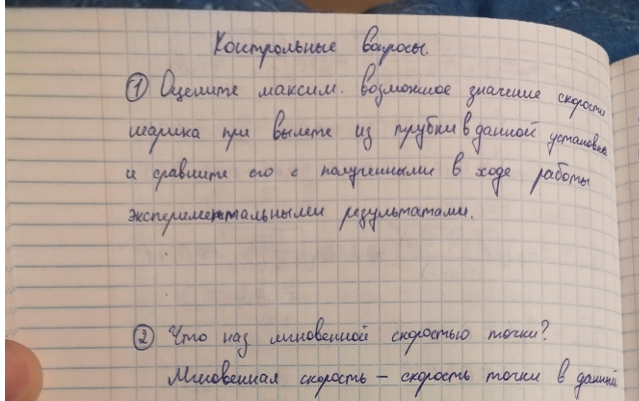 Контрольные вопросы.
① Оцените максим. возможное значение скорости
шарика при вылете из трубки в данной установке
и сравните его с полученными в ходе работы
экспериментальными результатами.
② Что наз мгновенной скоростью точки?
Мгновенная скорость – скорость точки в данный